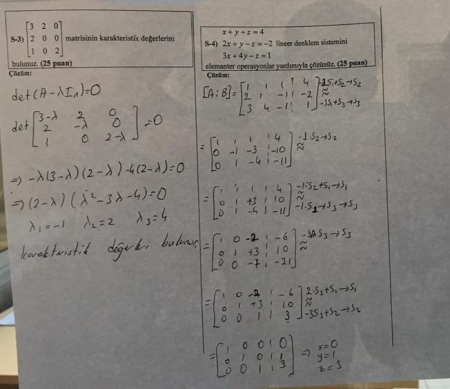 S-3) [3 2 0
2 0 0
1 0 2] matrisinin karakteristik değerlerini
bulunuz. (25 puan)
Çözüm:
det(A-λI_n)=0
det[3-λ 2 0
2 -λ 0
1 0 2-λ]=0
=> -λ(3-λ)(2-λ)-4(2-λ)=0
=> (2-λ)(λ²-3λ-4)=0
λ₁=-1 λ₂=2 λ₃=4
karakteristik değerleri bulunur
x+y+z=4
S-4) 2x+y-z=-2 lineer denklem sistemini
3x+4y-z=1
elemanter operasyonlar yardımıyla çözünüz. (25 puan)
Çözüm:
[A:B]=[1 1 1 | 4
2 1 -1 | -2
3 4 -1 | 1] -2S₁+S₂→S₂
≈
-3S₁+S₃→S₃
=[1 1 1 | 4
0 -1 -3 | -10
0 1 -4 | -11] -1.S₂→S₂
≈
=[1 1 1 | 4
0 1 +3 | 10
0 1 -4 | -11] -1.S₂+S₁→S₁
≈
-1.S₂+S₃→S₃
=[1 0 -2 | -6
0 1 +3 | 10
0 0 -7 | -21] S₃→S₃
≈
=[1 0 -2 | -6
0 1 +3 | 10
0 0 1 | 3] 2.S₃+S₁→S₁
≈
-3S₃+S₂→S₂
=[1 0 0 | 0
0 1 0 | 1
0 0 1 | 3] => x=0
y=1
z=3